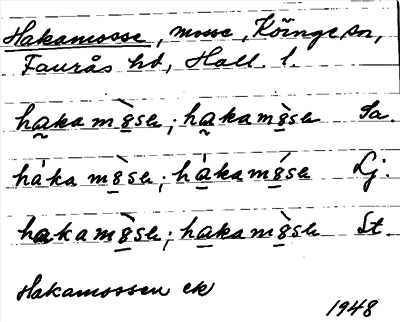 Hakamosse, mosse, Köinge sn,
Faurås hd, Hall. l.
hakamòsɐ; hakamòsɐ Sa.
hàka mòsɐ; hákamóse Lj.
hakamòsɐ; hakamòsɐ St.
Hakamossen ek
1948